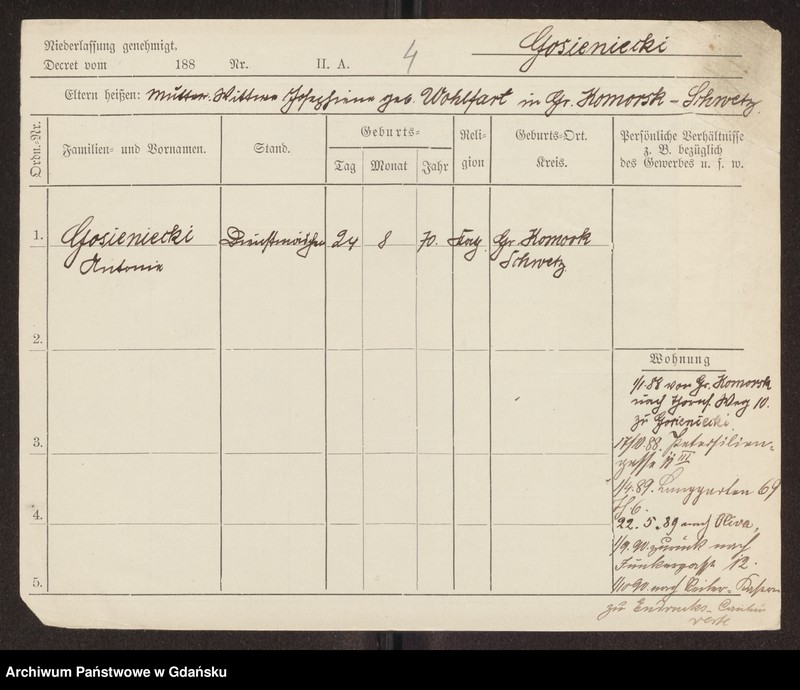 Gosieniecki
Niederlassung genehmigt.
Decret vom 188 Nr. II. A. 4
Eltern heißen: Mutter. Wittwe Josephiene geb. Wohlfart in Gr. Komorsk - Schwetz.
Ordn.-Nr. Familien- und Vornamen. Stand. Geburts- Tag Monat Jahr Religion Geburts-Ort. Kreis. Persönliche Verhältnisse z. B. bezüglich des Gewerbes u. s. w.
1. Gosieniecki Dienstmädchen 24 8 70. Gr. Komorsk
Antonie Schwetz
2.
Wohnung
1/1.88 von Gr. Komorsk
nach Weg 10.
zu Gosieniecki.
3.
17/10.88. Petersilien-
gasse 11 III
1/4.89. Langgarten 69
4.
22.5.89 nach Oliva,
1/9.90. zurück nach
Junkergasse 12.
5.
1/10 90. nach Reiter-
zu
Archiwum Państwowe w Gdańsku